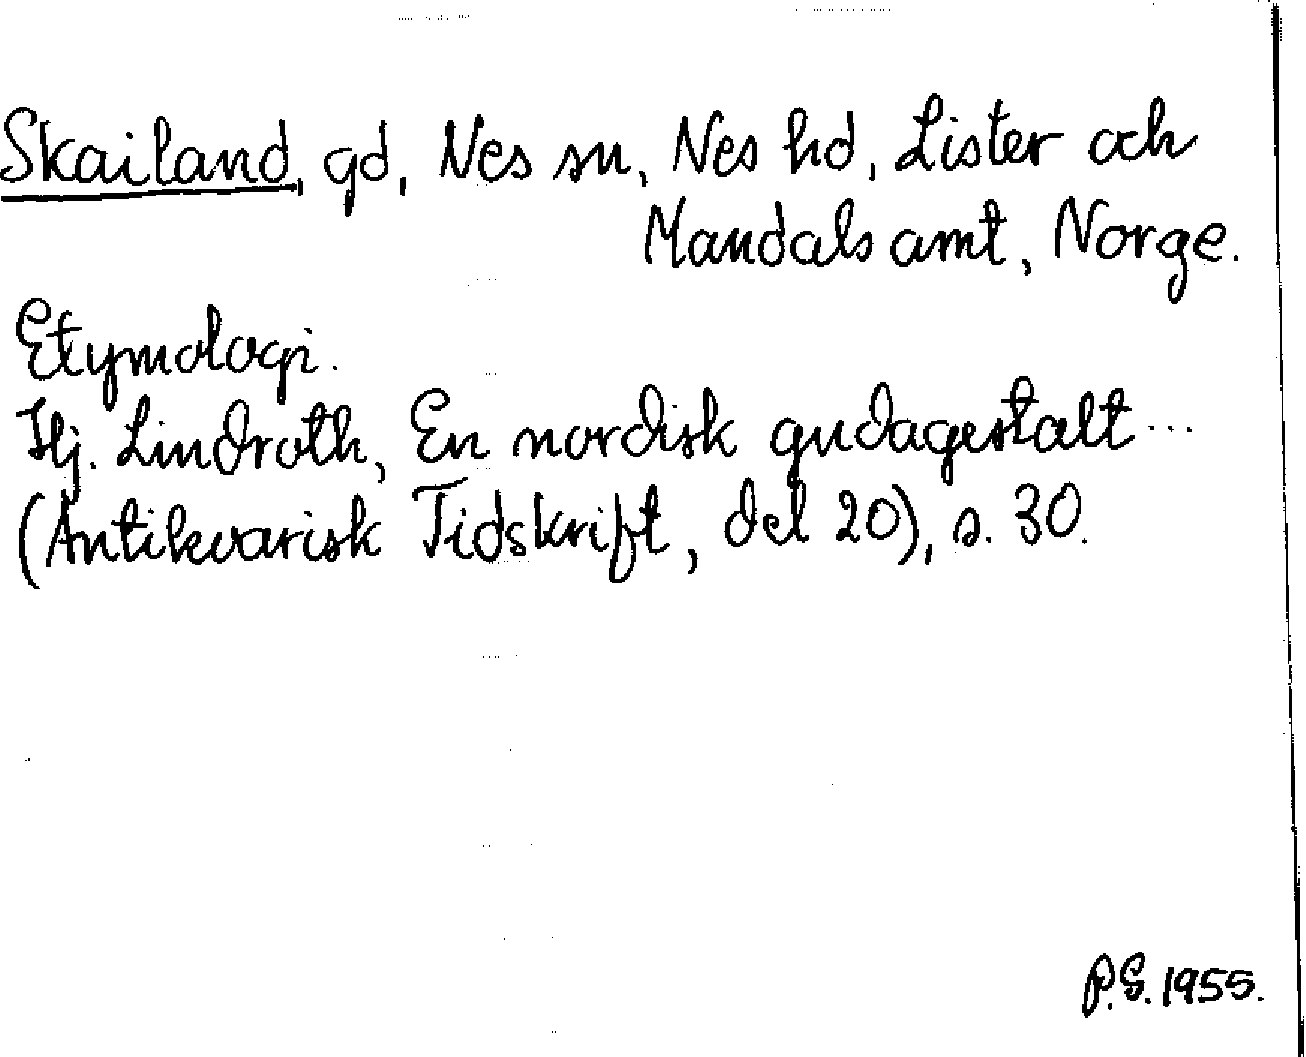 Skailand, gd, Nes sn, Nes hd, Lister och
Mandals amt, Norge.
Etymologi.
Hj. Lindroth, En nordisk gudagestalt ...
(Antikvarisk Tidskrift, del 20), s. 30.
P.G. 1955.